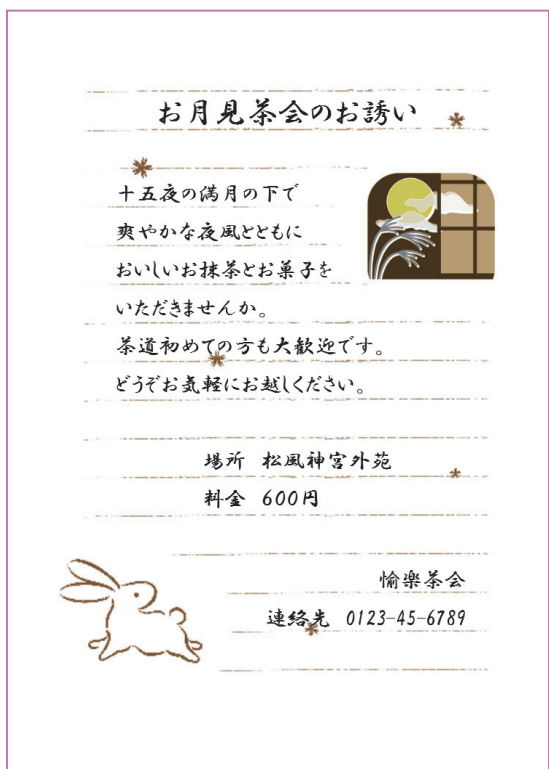 お月見茶会のお誘い
十五夜の満月の下で
爽やかな夜風とともに
おいしいお抹茶とお菓子を
いただきませんか。
茶道初めての方も大歓迎です。
どうぞお気軽にお越しください。
場所 松風神宮外苑
料金 600円
愉楽茶会
連絡先 0123-45-6789